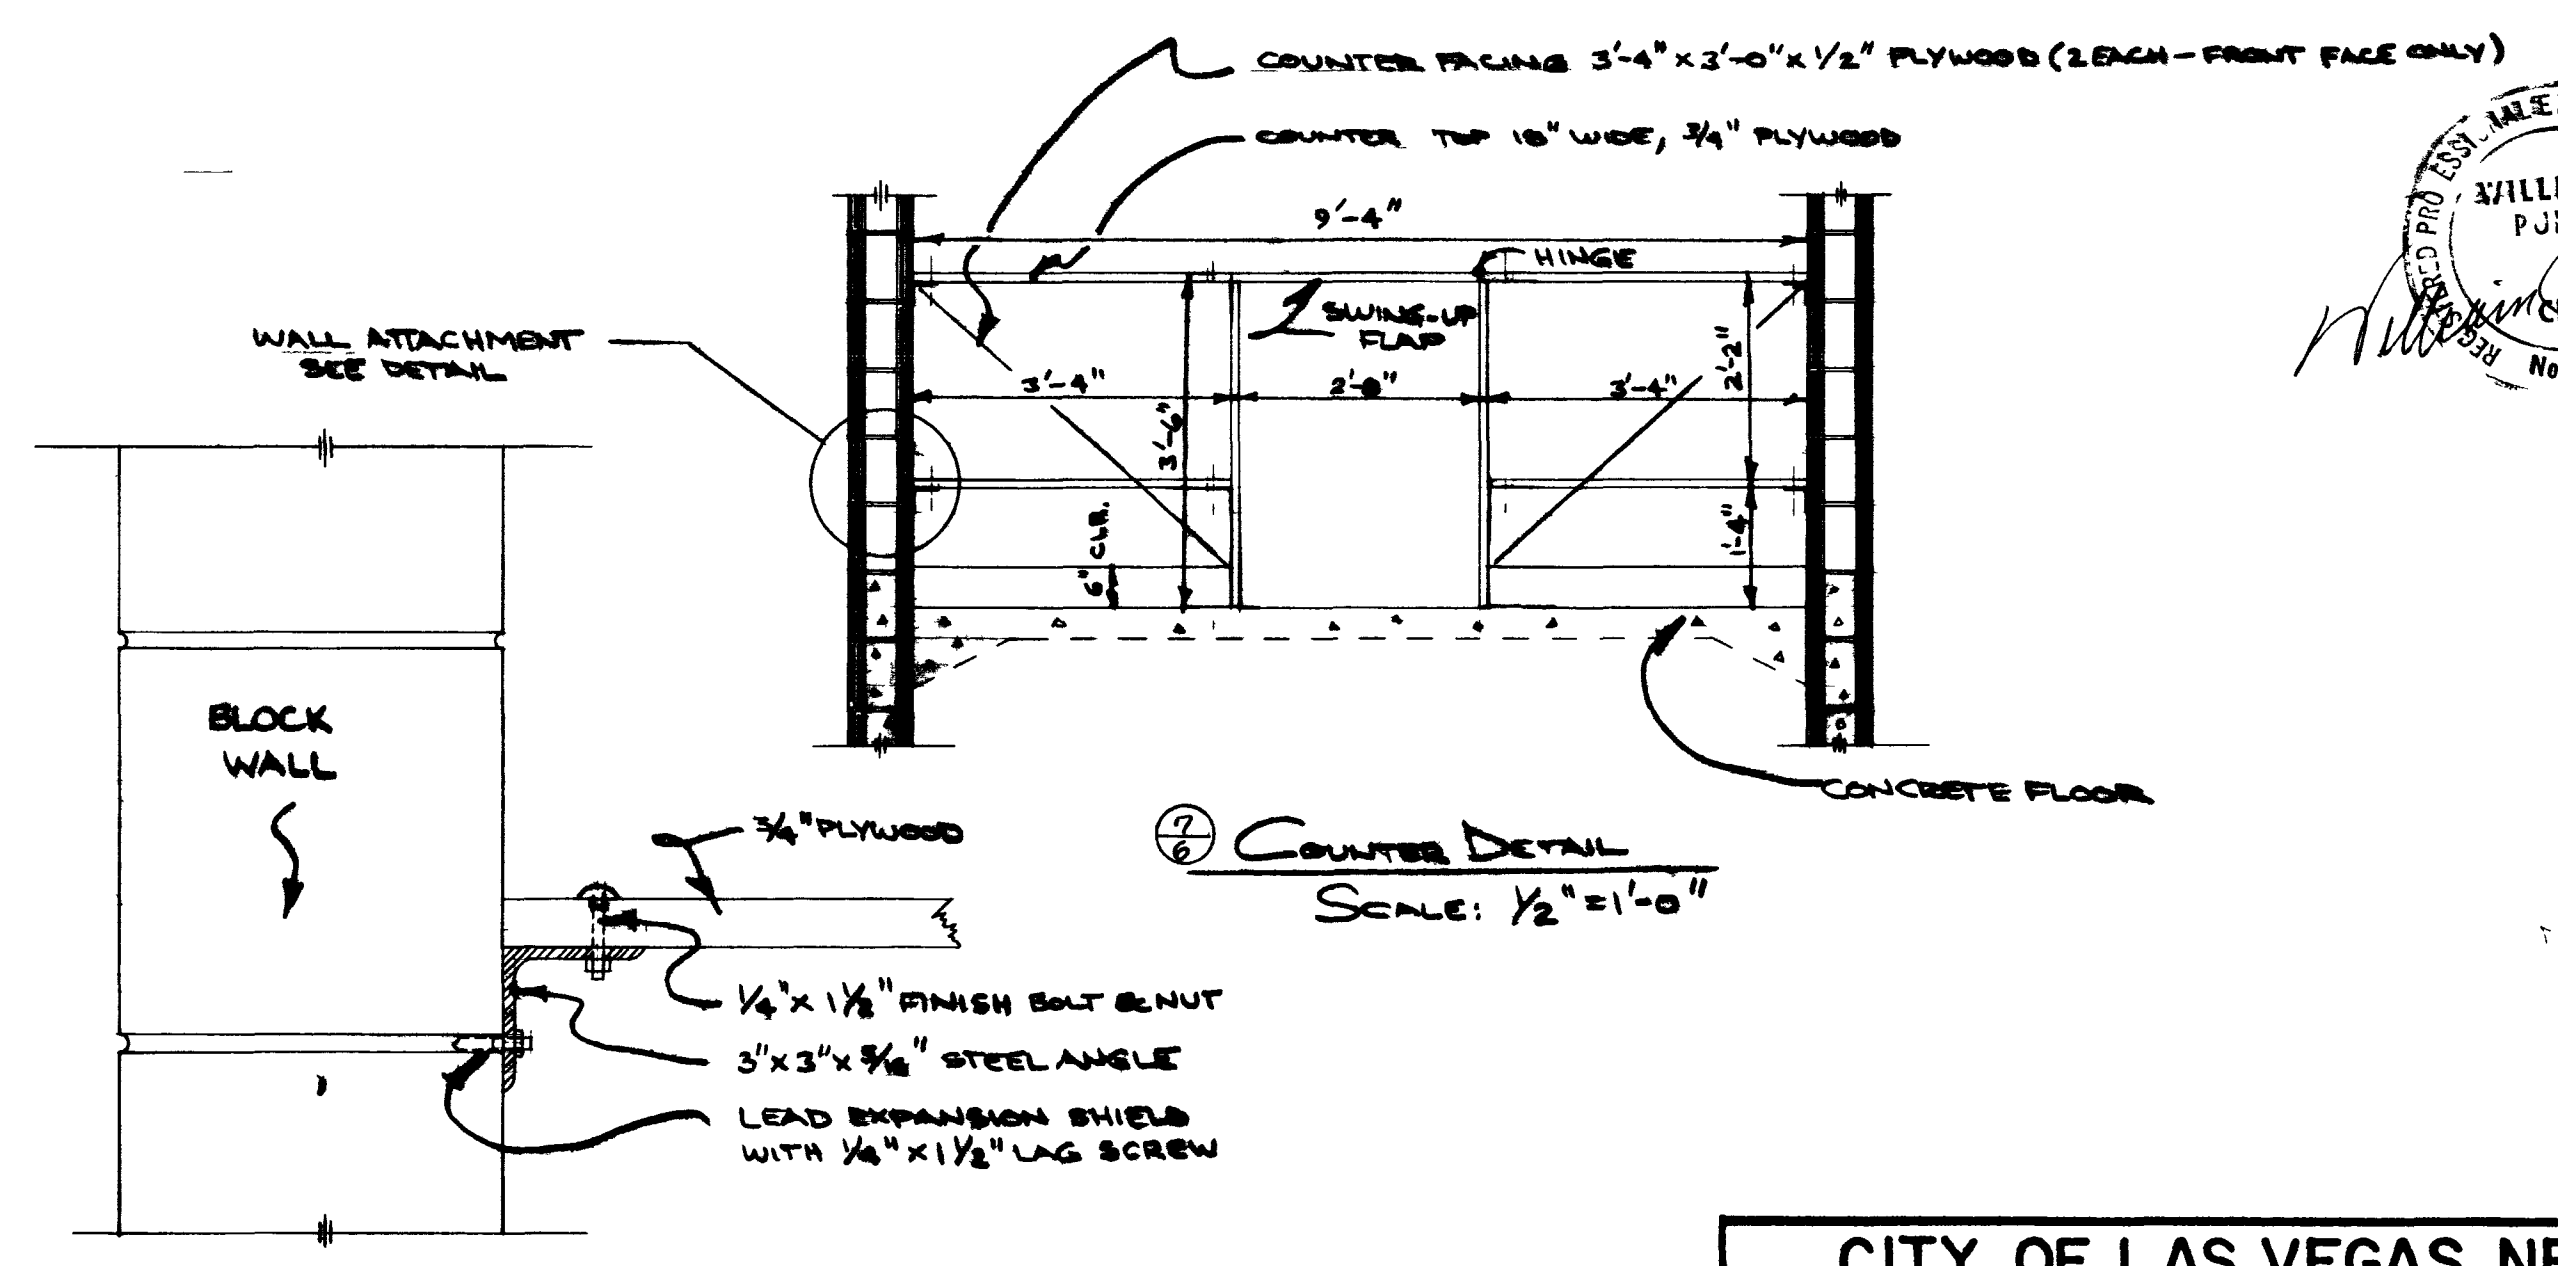 COUNTER FACING 3'-4" x 3'-0" x 1/2" PLYWOOD (2 EACH - FRONT FACE ONLY)
COUNTER TOP 18" WIDE, 3/4" PLYWOOD
9'-4"
HINGE
SWING-UP
FLAP
WALL ATTACHMENT
SEE DETAIL
3'-4"
2'-8"
3'-4"
2'-2"
3'-6"
1'-4"
6" CLR.
BLOCK
WALL
CONCRETE FLOOR
3/4" PLYWOOD
7
6
COUNTER DETAIL
SCALE: 1/2" = 1'-0"
1/4" x 1 1/2" FINISH BOLT & NUT
3" x 3" x 5/16" STEEL ANGLE
LEAD EXPANSION SHIELD
WITH 1/4" x 1 1/2" LAG SCREW
REGISTERED PROFESSIONAL
WILLI
No
CITY OF LAS VEGAS, NE